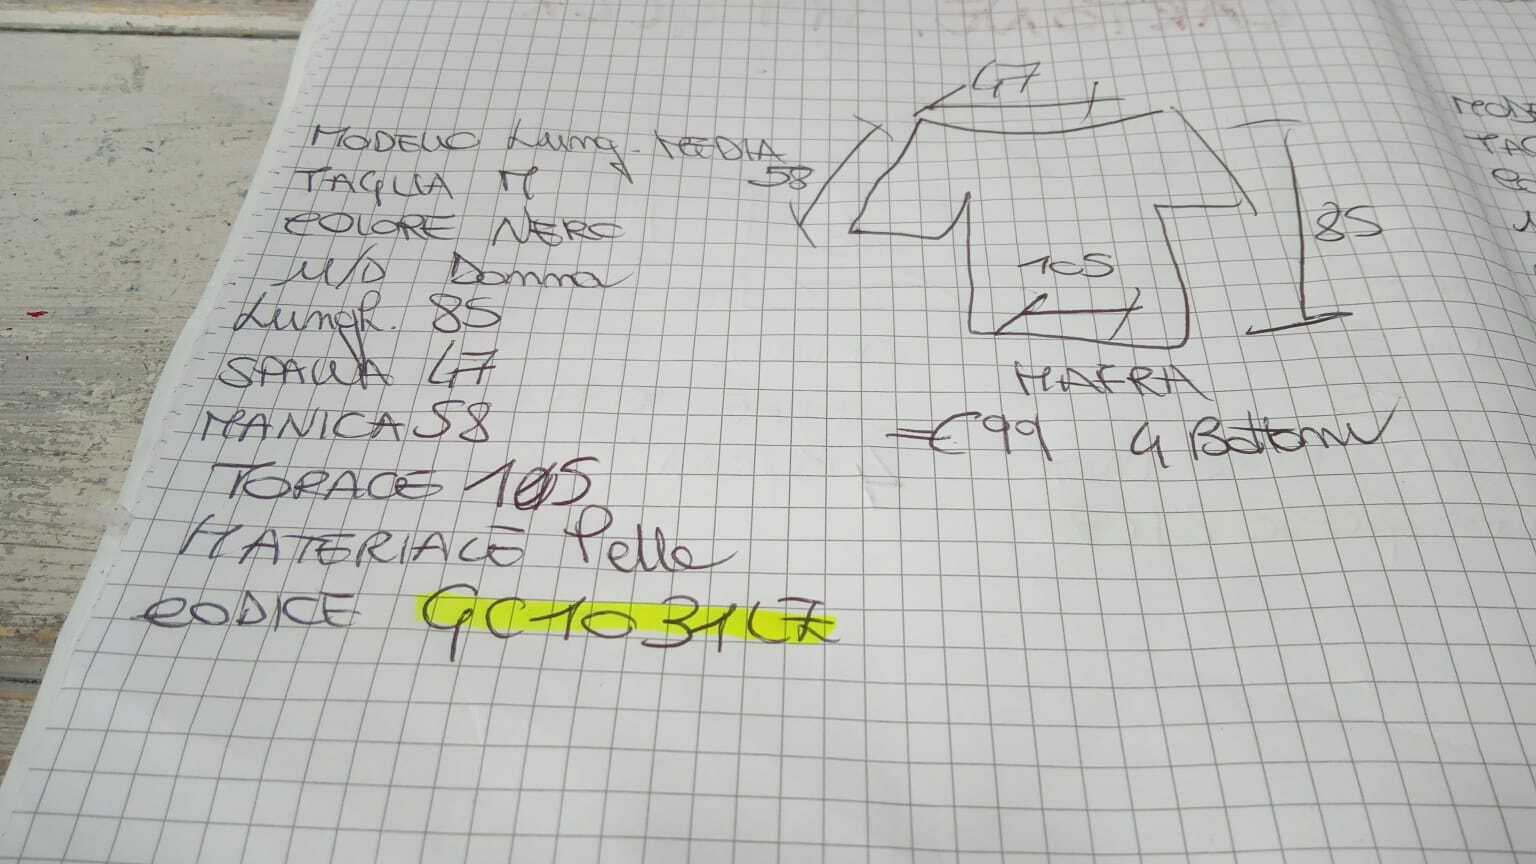 MODELLO Lung. MEDIA
TAGLIA M
COLORE NERO
U/D Donna
Lungh. 85
SPALLA 47
MANICA 58
TORACE 105
MATERIALE Pelle
CODICE GC1031L7
47
58
85
105
MAFRA
€99 4 Bottoni